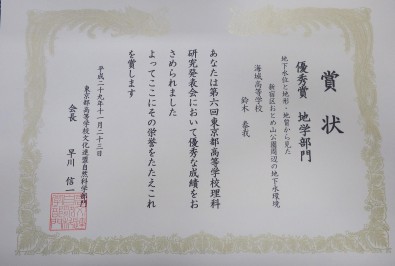 賞状
優秀賞 地学部門
地下水位と地形・地質から見た
新宿区おとめ山公園周辺の地下水環境
海城高等学校
鈴木 泰我
あなたは第六回東京都高等学校理科
研究発表会において優秀な成績をお
さめられました
よってここにその栄誉をたたえこれ
を賞します
平成二十九年十一月二十三日
東京都高等学校文化連盟自然科学部門
会長 早川 信一